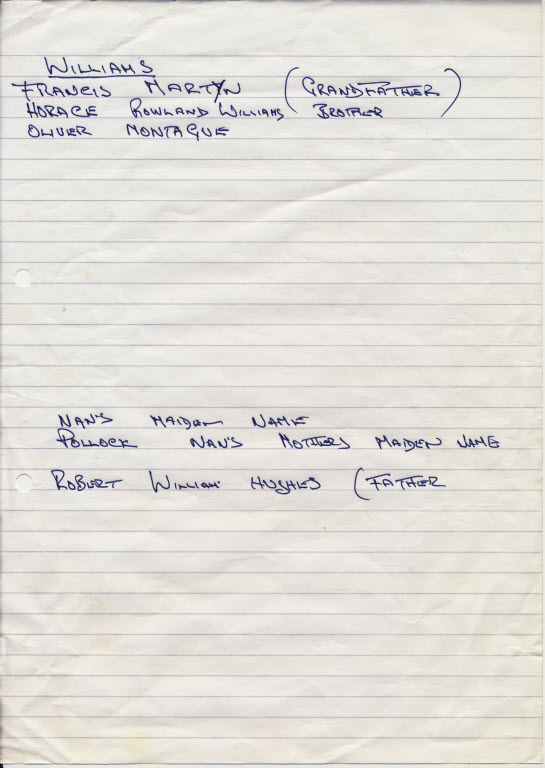 WILLIAMS
FRANCIS MARTYN (GRANDFATHER)
HORACE ROWLAND WILLIAMS BROTHER
OLIVER MONTAGUE
NAN'S MAIDEN NAME
POLLOCK NAN'S MOTHERS MAIDEN NAME
ROBERT WILLIAM HUGHES (FATHER